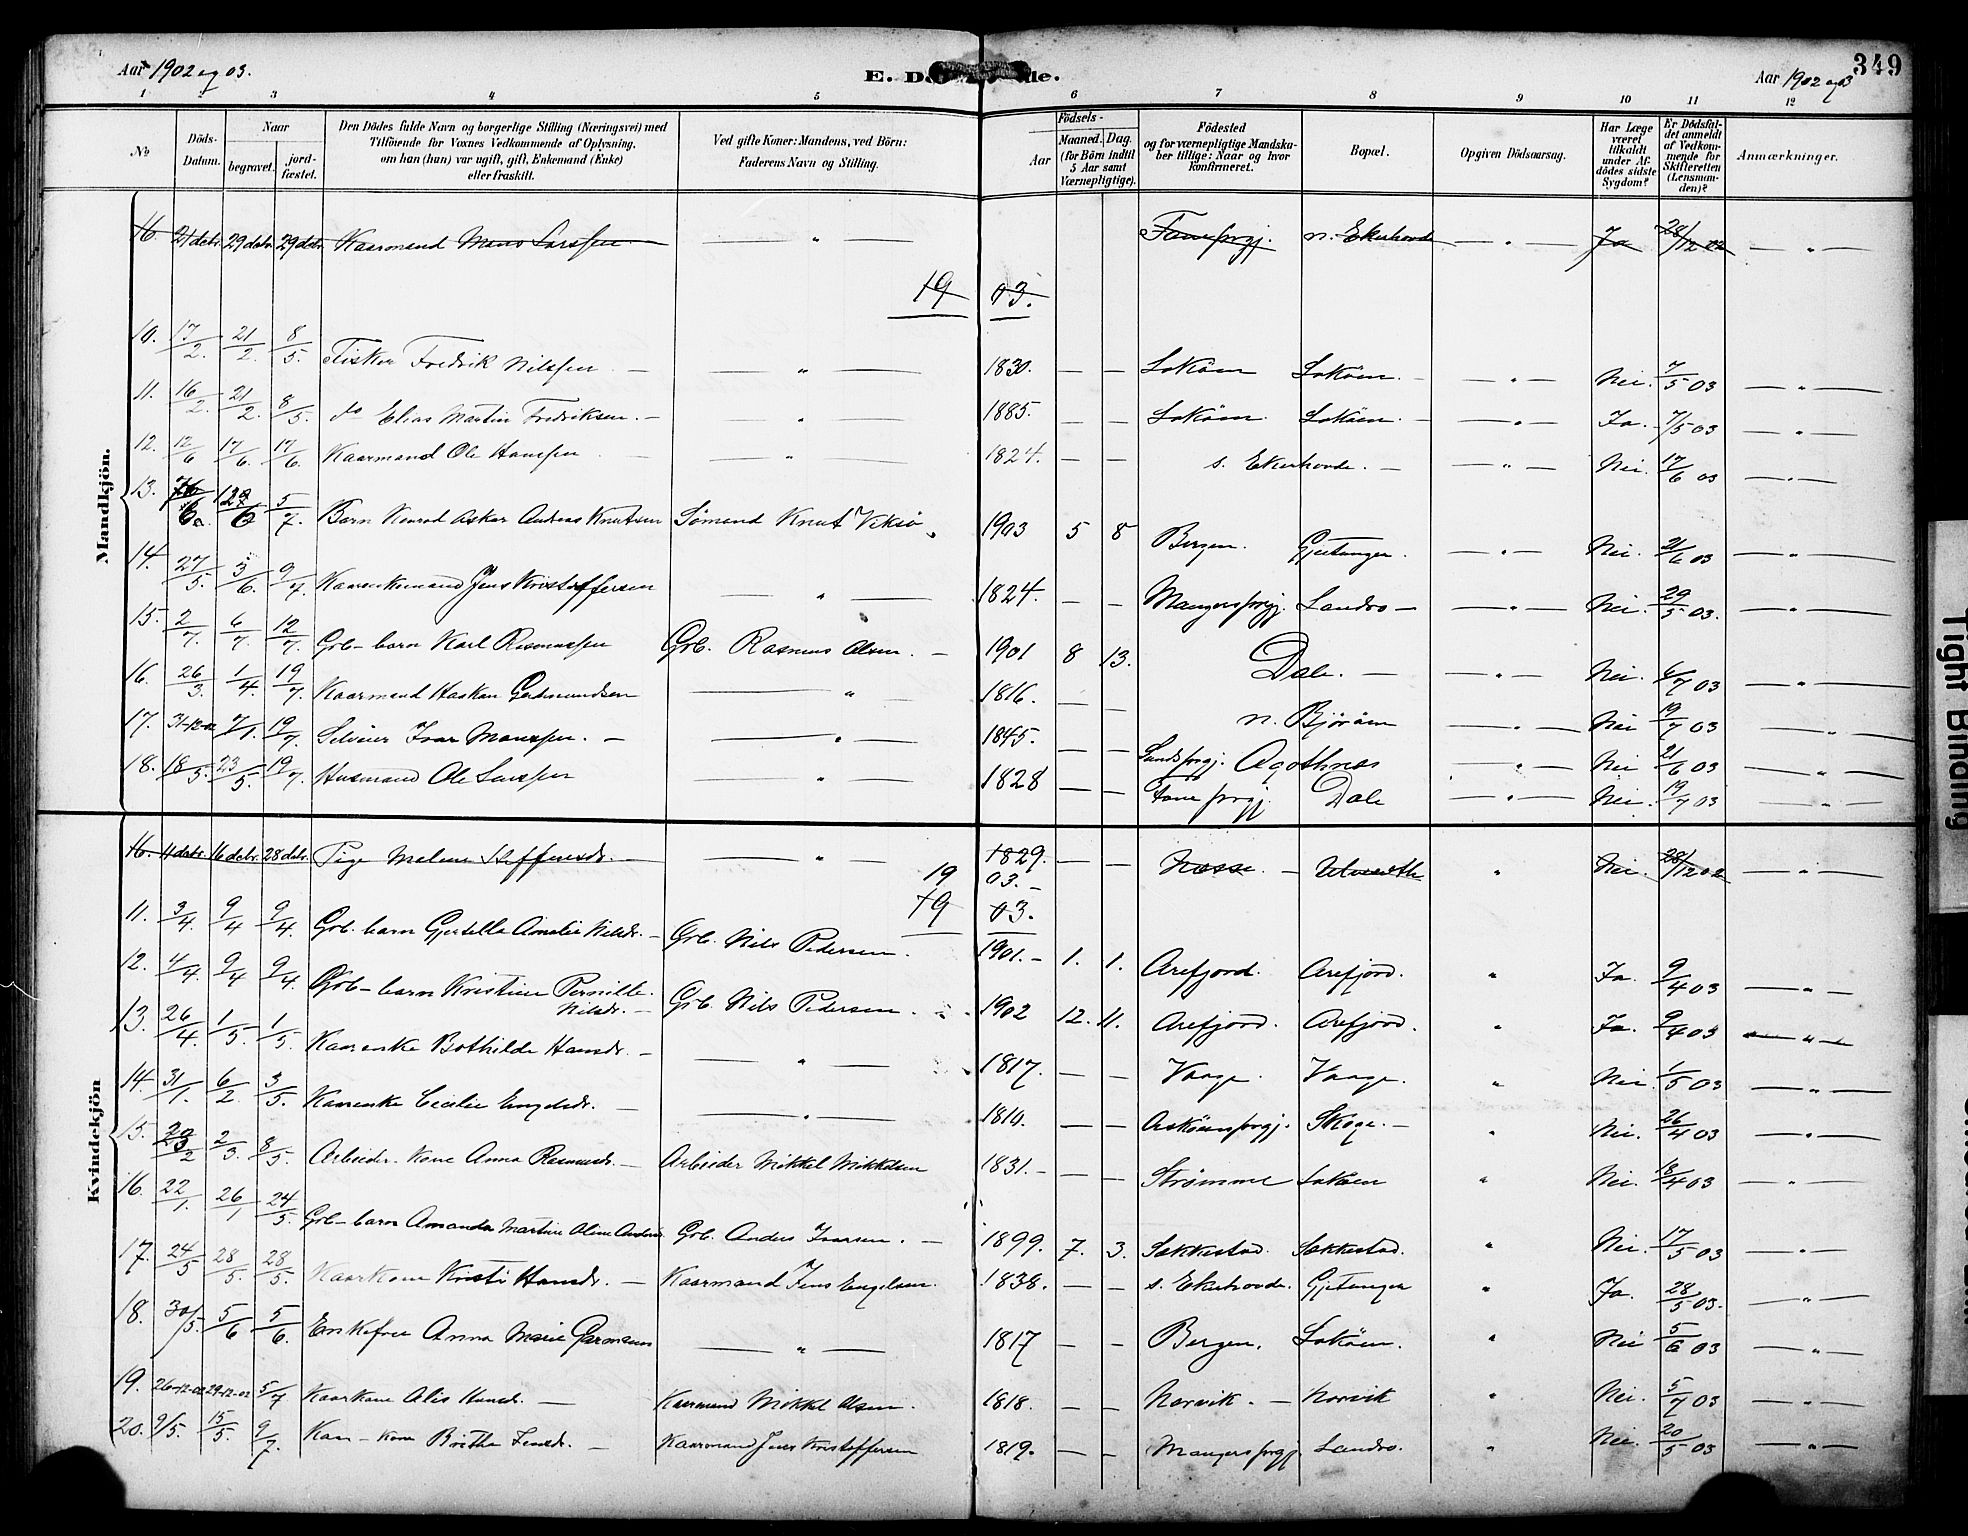 Aar 1902 og 03.
E. Dø de.
Aar 1902 og 3
349
1 2 3 4 5 6 7 8 9 10 11 12
No
Döds-Datum.
Naar
begravet.
jordfæstet.
Den Dödes fulde Navn og borgerlige Stilling (Næringsvei) med Tilföiende for Voxnes Vedkommende af Oplysning, om han (hun) var ugift, gift, Enkemand (Enke) eller fraskilt.
Ved gifte Koner: Mandens, ved Börn: Faderens Navn og Stilling.
Födsels-
Aar
Maaned. Dag.
(for Börn indtil 5 Aar samt Værnepligtige).
Födested og for værnepligtige Mandskaber tillige: Naar og hvor konfirmeret.
Bopæl.
Opgiven Dödsaarsag.
Har Læge været tilkaldt under Afdödes sidste Sygdom?
Er Dödsfaldet anmeldt af Vedkommende for Skifteretten (Lensmanden)?
Anmærkninger.
Mandkjön.
16. 21 decbr. 29 decbr. 29 decbr. Kaarmand Mons Larssen — " — Fane prgj. n. Ekerhovde — " — Ja 28/12 02 — " —
19 03.
10. 17/2. 21/2. 8/5. Fisker Fredrik Nilssen — " — 1830. — — Lokøen Lokøen. — " — Nei. 7/5 03 — " —
11. 16/2. 21/2. 8/5. do Elias Martin Fredriksen. — " — 1885. — — Lokøen. Lokøen — " — Ja. 7/5 03 — " —
12. 12/6 17/6. 17/6. Kaarmand Ole Hanssen — " — 1824. — — s. Ekerhovde. — " — Nei. 17/6 03 — " —
13. 5/7. Barn Konrad Askar Andreas Knutsen Sømand Knut Viksø 1903 5 8 Bergen. Gjetanger. — " — Nei. 21/6 03 — " —
14. 27/5. 3/6. 9/7. Kaarenkemand Jens Kristoffersen — " — 1824. — — Mangers prgj. Landro — " — Nei. 29/5 03. — " —
15. 2/7. 6/7. 12/7. Grb-barn Karl Rasmussen Grb. Rasmus Olsen. — 1901 8 13. Dale. — " — Nei. 6/7 03 — " —
16. 26/3. 1/4. 19/7. Kaarmand Haakon Gudmundsen — " — 1816. — — n. Bjørøen — " — Nei 19/7 03 — " —
17. 31-12-02 7/1. 19/7. Selveier Ivar Monssen. — " — 1845. — — Sunds prgj. Agothnes — " — Nei 21/6 03 — " —
18. 18/5. 23/5. 19/7. Husmand Ole Larssen — " — 1828 — — Fane prgj. Dale — " — Nei. 19/7 03 — " —
Kvindekjön
16. 11 decbr. 16 decbr. 28 decbr. Pige Malene Steffensdr. — " — 1829. — — Næsse. — Ulveseth " Nei. 28/12 02 — " —
19 03. —
19 03.
11. 3/4. 9/4 9/4. Grb. barn Gjertille Amalie Nilsdr. — Grb. Nils Pedersen. 1901. — 1. 1. Arefjord. Arefjord. " Ja. 9/4 03 — " —
12. 4/4. 9/4 9/4. Grb-barn Kristine Pernille Nilsdr. — Grb. Nils Pedersen. 1902 12. 11. Arefjord. Arefjord. " Ja. 9/4 03 — " —
13. 26/4. 1/5. 1/5. Kaarenke Bothilde Hansdr. — " — 1817. — — Vaage. Vaage. " Nei. 1/5 03 — " —
14. 31/1. 6/2. 3/5. Kaarenke Cecilie Engelsdr. — " — 1810. — — Askøens prgj. Skoge. — " Nei. 26/4 03 — " —
15. 2/3. 8/5. Arbeider-kone Anna Rasmusdr. — Arbeider Mikkel Mikkelsen 1831. — — — Strømme Lokøen " Nei. 18/4 03 — " —
16. 22/1. 26/1 24/5. Grb-barn Amanda Martine Oline Andersdr. Grb. Anders Ivarsen. — 1899. 7. 3. Sækkestad. Sækkestad. " Nei. 17/5 03 — " —
17. 24/5 28/5. 28/5. Kaarkone Kristi Hansdr. — Kaarmand Jens Engelsen. 1838. — — s. Ekerhovde. Gjetanger " Ja. 28/5 03. — " —
18. 30/5. 5/6 5/6. Enkefru Anna Marie Garmann — " — 1817 — — Bergen. Lokøen. " Nei 5/6 03 — " —
19. 26-12-02 29-12-02 5/7 Kaarkone Alis Hansdr. — Kaarmand Mikkel Olsen. 1818. — — Norvik. — Norvik " Nei. 5/7 03 — " —
20. 9/5. 15/5. 9/7. Kaar-kone Brithe Jensdr. — Kaarmand Jens Kristoffersen 1819. — — Mangers prgj. Landro. " Nei. 20/5 03 — " —
Tight Binding